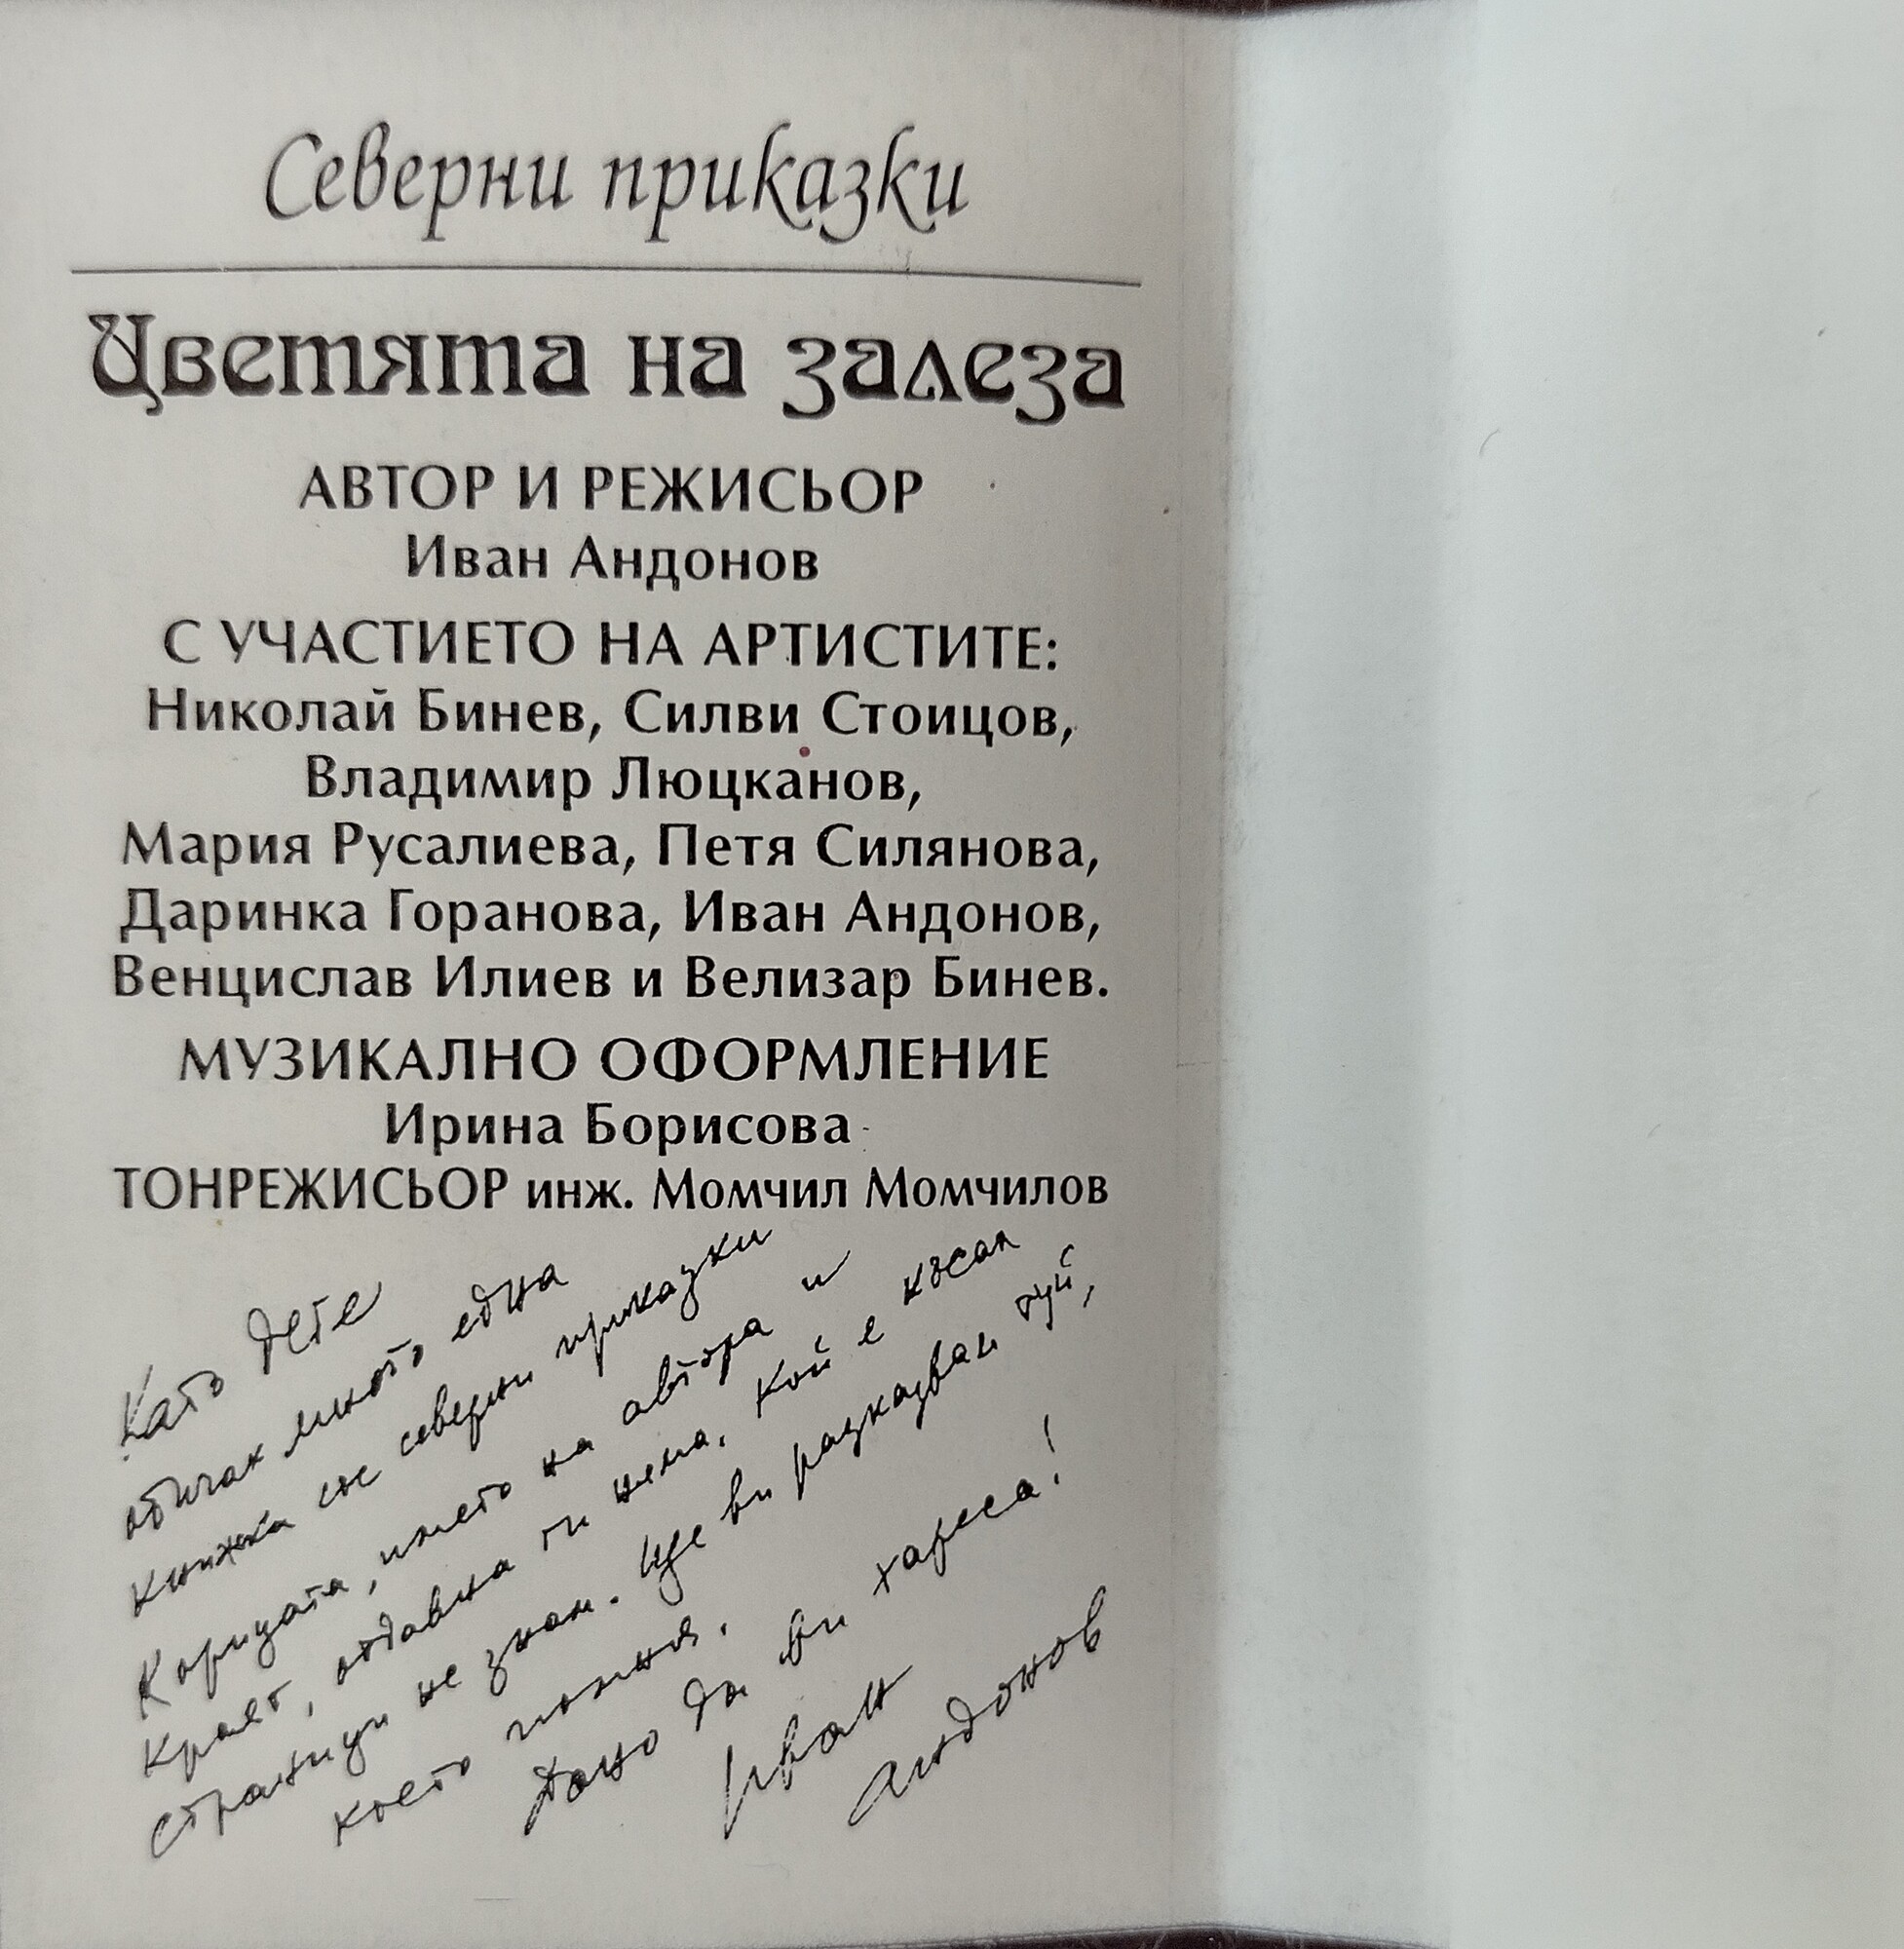 Северни приказки
Цветята на залеза
АВТОР И РЕЖИСЬОР
Иван Андонов
С УЧАСТИЕТО НА АРТИСТИТЕ:
Николай Бинев, Силви Стоицов,
Владимир Люцканов,
Мария Русалиева, Петя Силянова,
Даринка Горанова, Иван Андонов,
Венцислав Илиев и Велизар Бинев.
МУЗИКАЛНО ОФОРМЛЕНИЕ
Ирина Борисова
ТОНРЕЖИСЬОР инж. Момчил Момчилов
Като дете
обичах много една
книжка със северни приказки
Корицата, името на автора и
краят, отдавна ги няма. Кой е късал
страници не знам. Ще ви разказвам туй,
което помня.
Дано да ви хареса!
Иван
Андонов